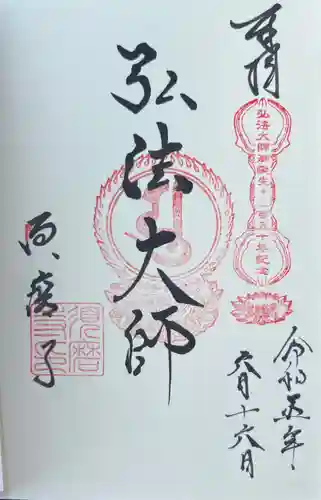 奉拝
弘法大師御誕生一二五〇年記念
令和五年
六月十六日
弘法大師
須磨寺